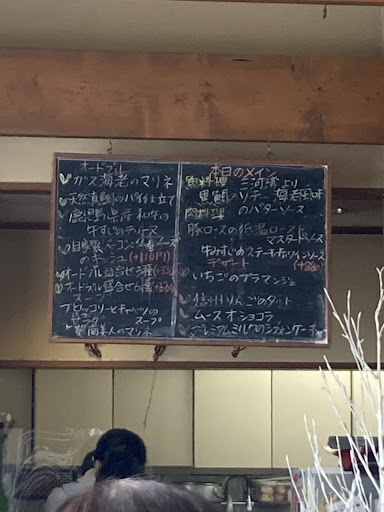 オードブル
ガス海老のマリネ
天然真鯛のパイ仕立て
鹿野県産和牛の
牛すじのテリーヌ
自家製ベーコンとチーズ
のキッシュ(+110円)
オードブル盛合せ3種(+330
オードブル盛合せ6種(+660
スープ
ブロッコリーとキャベツの
スープ
サラダ
のマリネ
本日のメイン
魚料理 三河湾より
黒鯛のソテー
のバターソース
肉料理
豚ロースの低温ロースト
マスタードソース
牛みすじのステーキ赤ワインソース
デザート
いちごのブランマンジェ
信州りんごのタルト
ムースオショコラ
プレミアムミルクのシフォンケーキ